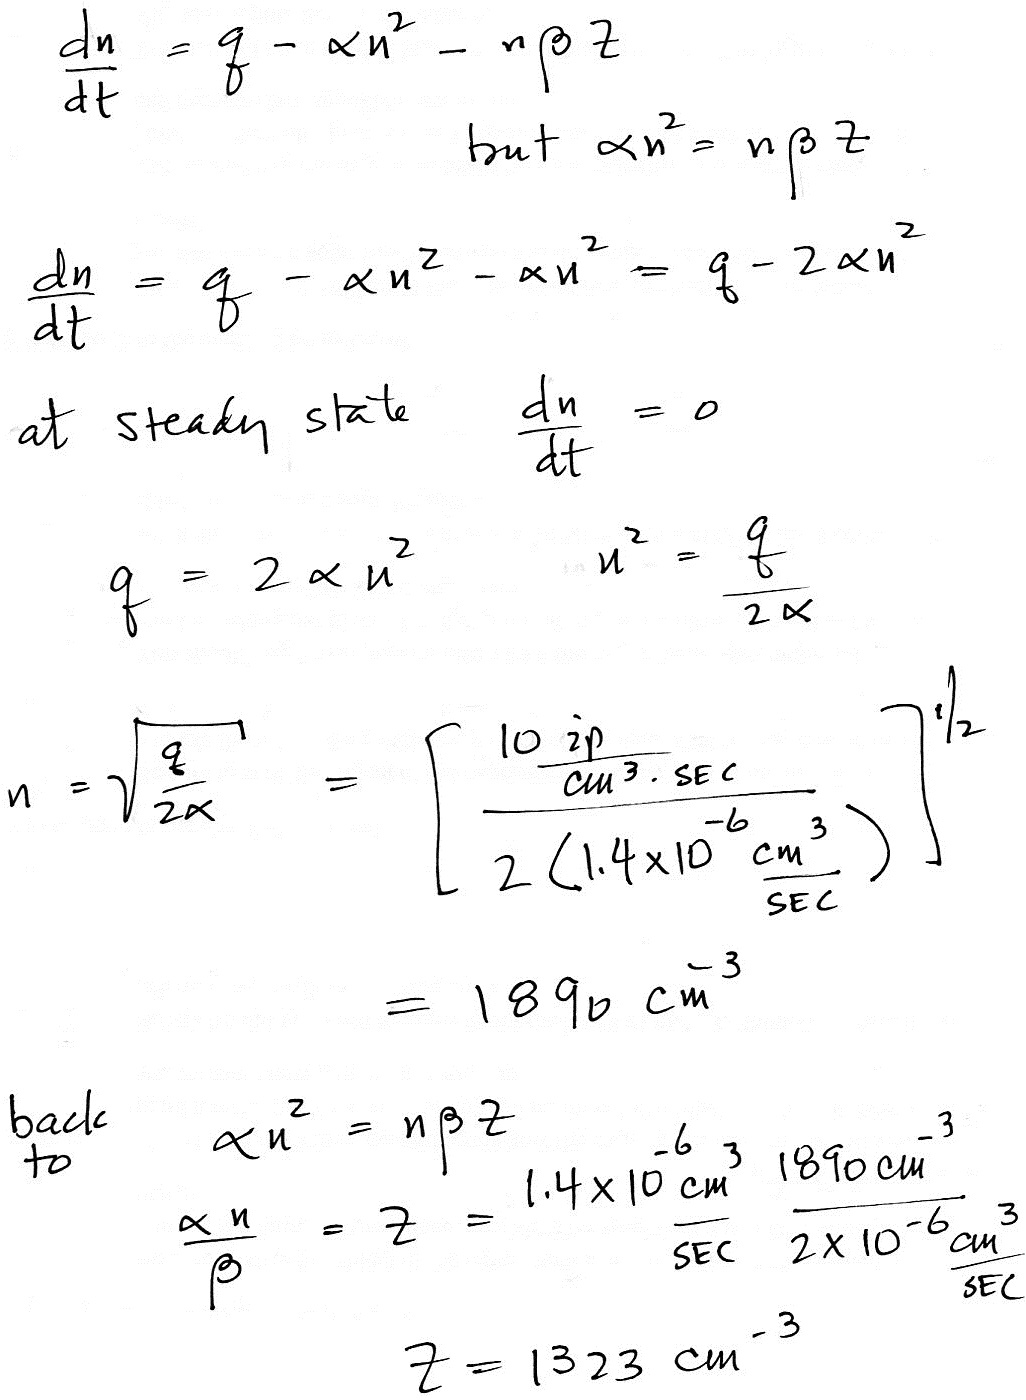 dn/dt = q - αn² - nβZ
but αn² = nβZ
dn/dt = q - αn² - αn² = q - 2αn²
at steady state dn/dt = 0
q = 2αn² n² = q/2α
n = √(q/2α) = [10 ip/cm³·SEC / 2(1.4x10⁻⁶ cm³/SEC)]^1/2
= 1890 cm⁻³
back to αn² = nβZ
αn/β = Z = 1.4x10⁻⁶ cm³/SEC 1890 cm⁻³ / 2x10⁻⁶ cm³/SEC
Z = 1323 cm⁻³